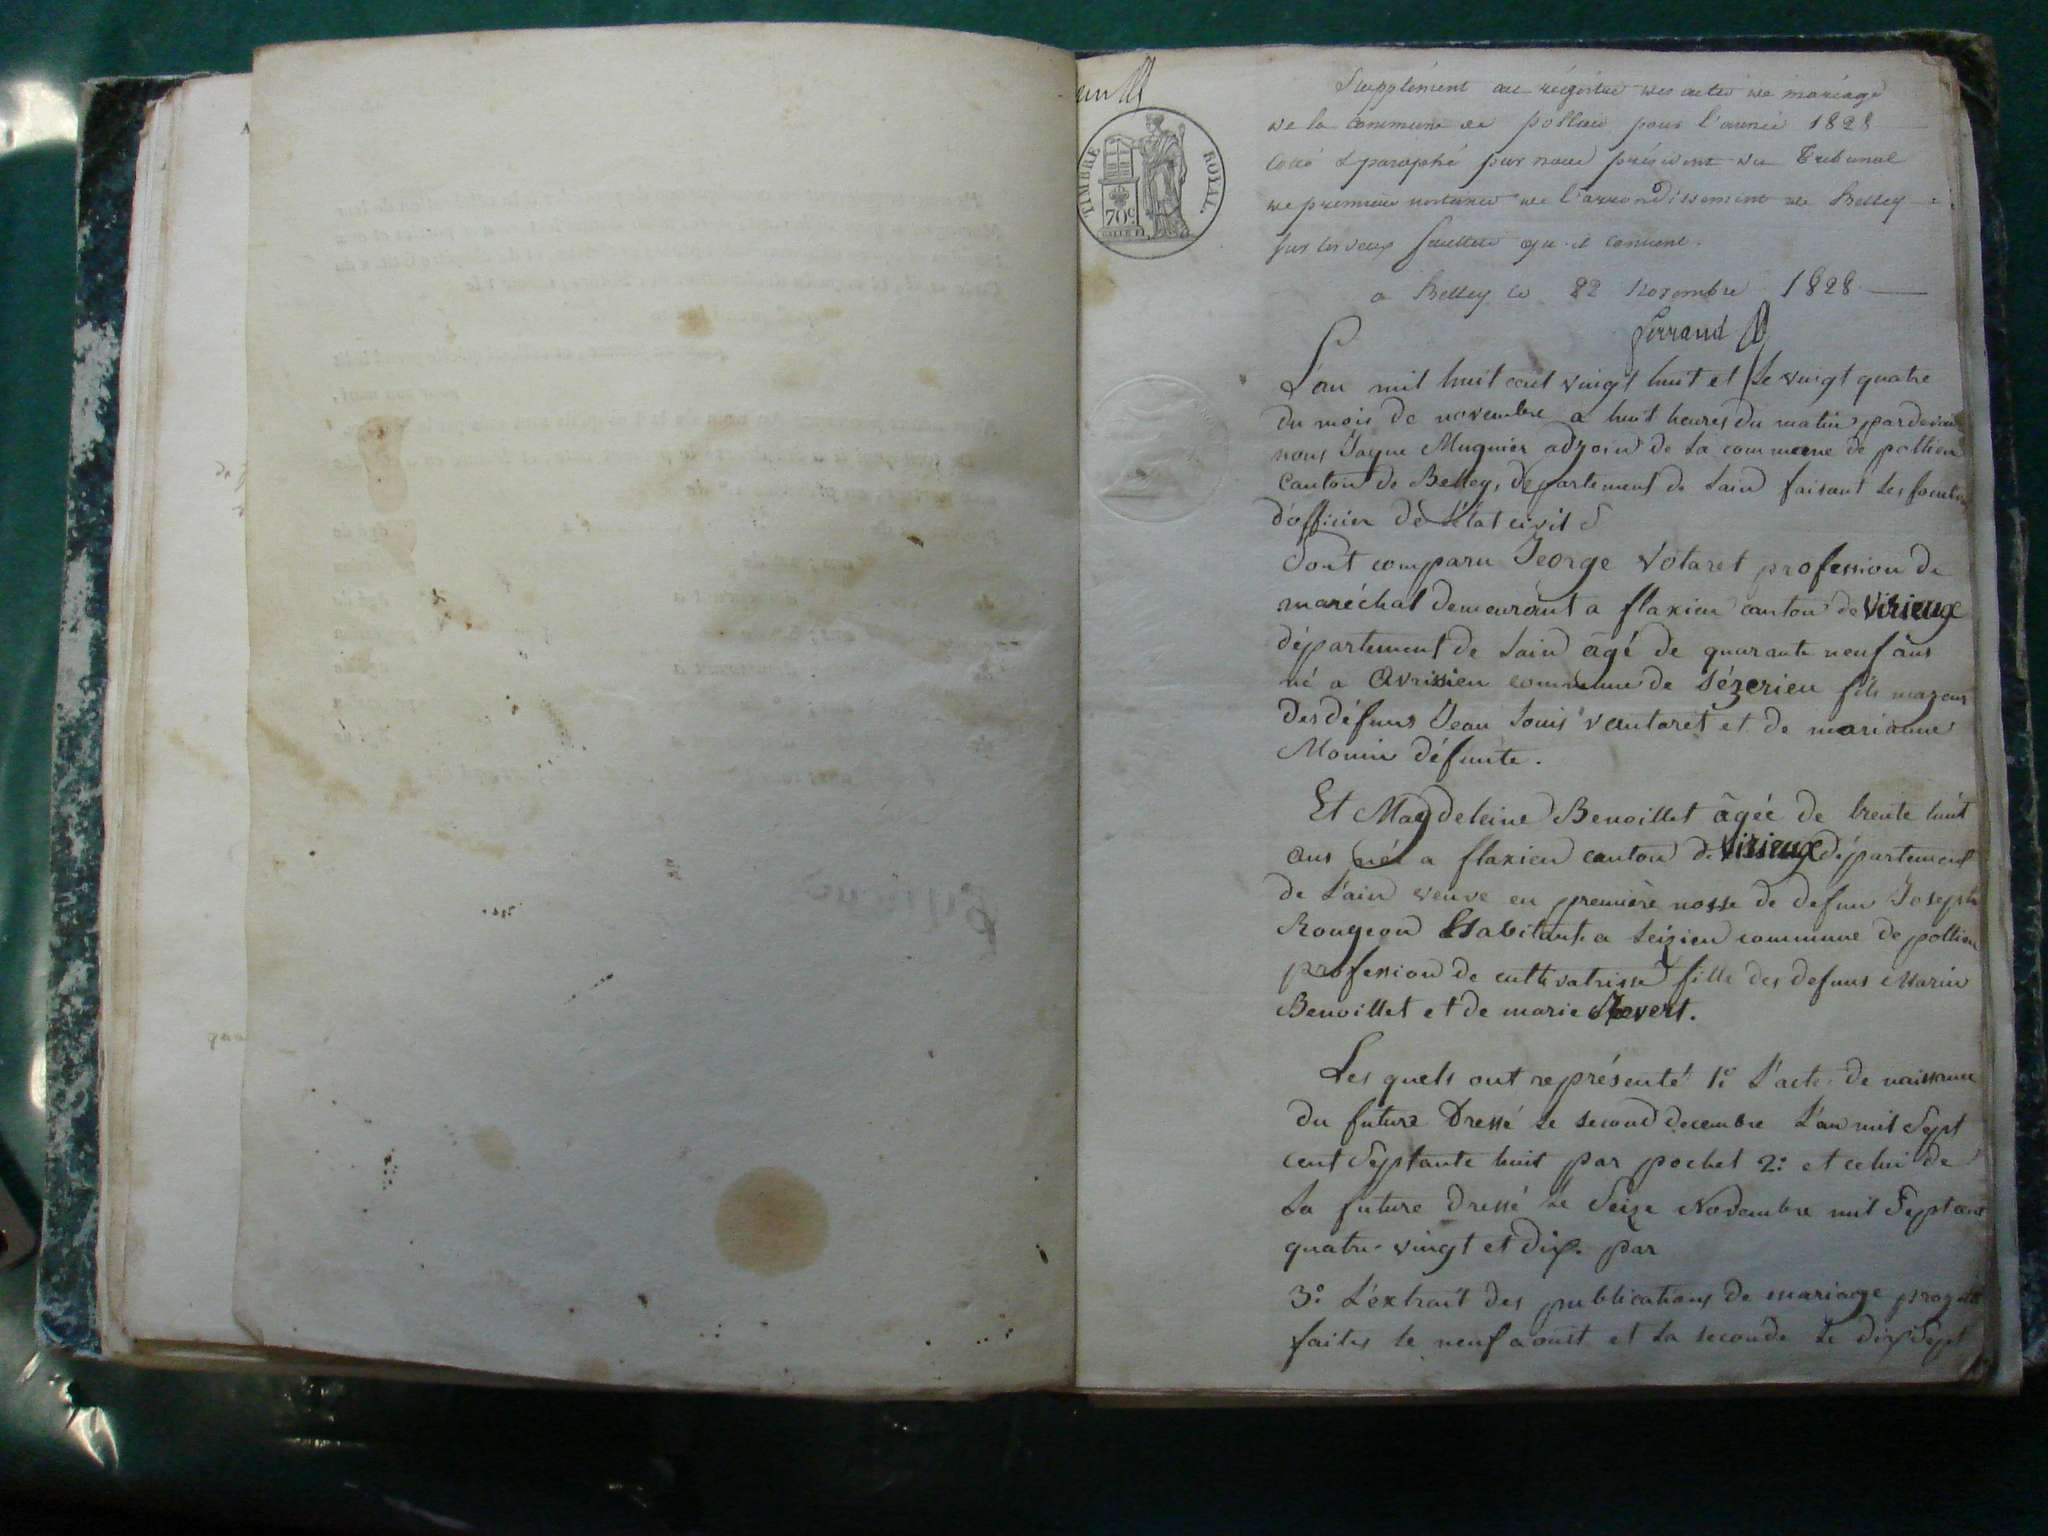 Supplément au régistre des actes de mariage
de la commune de pollieu pour l'année 1828
Coté & paraphé par nous président du Tribunal
de première instance de l'arrondissement de Belley
sur les deux feuillets qu'il contient.
a Belley le 22 Novembre 1828
ferrand
TIMBRE ROYAL.
70c
L'an mil huit cent vingt huit et le vingt quatre
du mois de novembre a huit heures du matin pardevant
nous Jaque Mugnier adjoin de la commune de pollieu
Canton de Belley, département de Lain faisant les fonction
d'officier de L'état civil
Sont comparu George Votaret profession de
maréchal demeurant a flaxieu canton de Virieux
département de Lain âgé de quarante neuf ans
né a Avrissieu commune de Sézerieu fils majeur
des défuns Jean Louis vautaret et de marianne
Monin défunte.
Et Magdeleine Benoillet âgée de trente huit
ans née a flaxieu canton de Virieux département
de L'ain veuve en première nosse de defun Joseph
Rougeon Habitante a Leizieu commune de pollieu
profession de cultivatrisse fille des defuns Marin
Benoillet et de marie
Les quels ont représenté 1º L'acte de naissance
du future Dressé le second decembre L'an mil Sept
cent Septante huit par pochet 2º et celui de
La future Dressé le Seize Novembre mil Sept cent
quatre-vingt et dix. par
3º L'extrait des publications de mariage projeté
faites le neuf aoust et la seconde le dix Sept